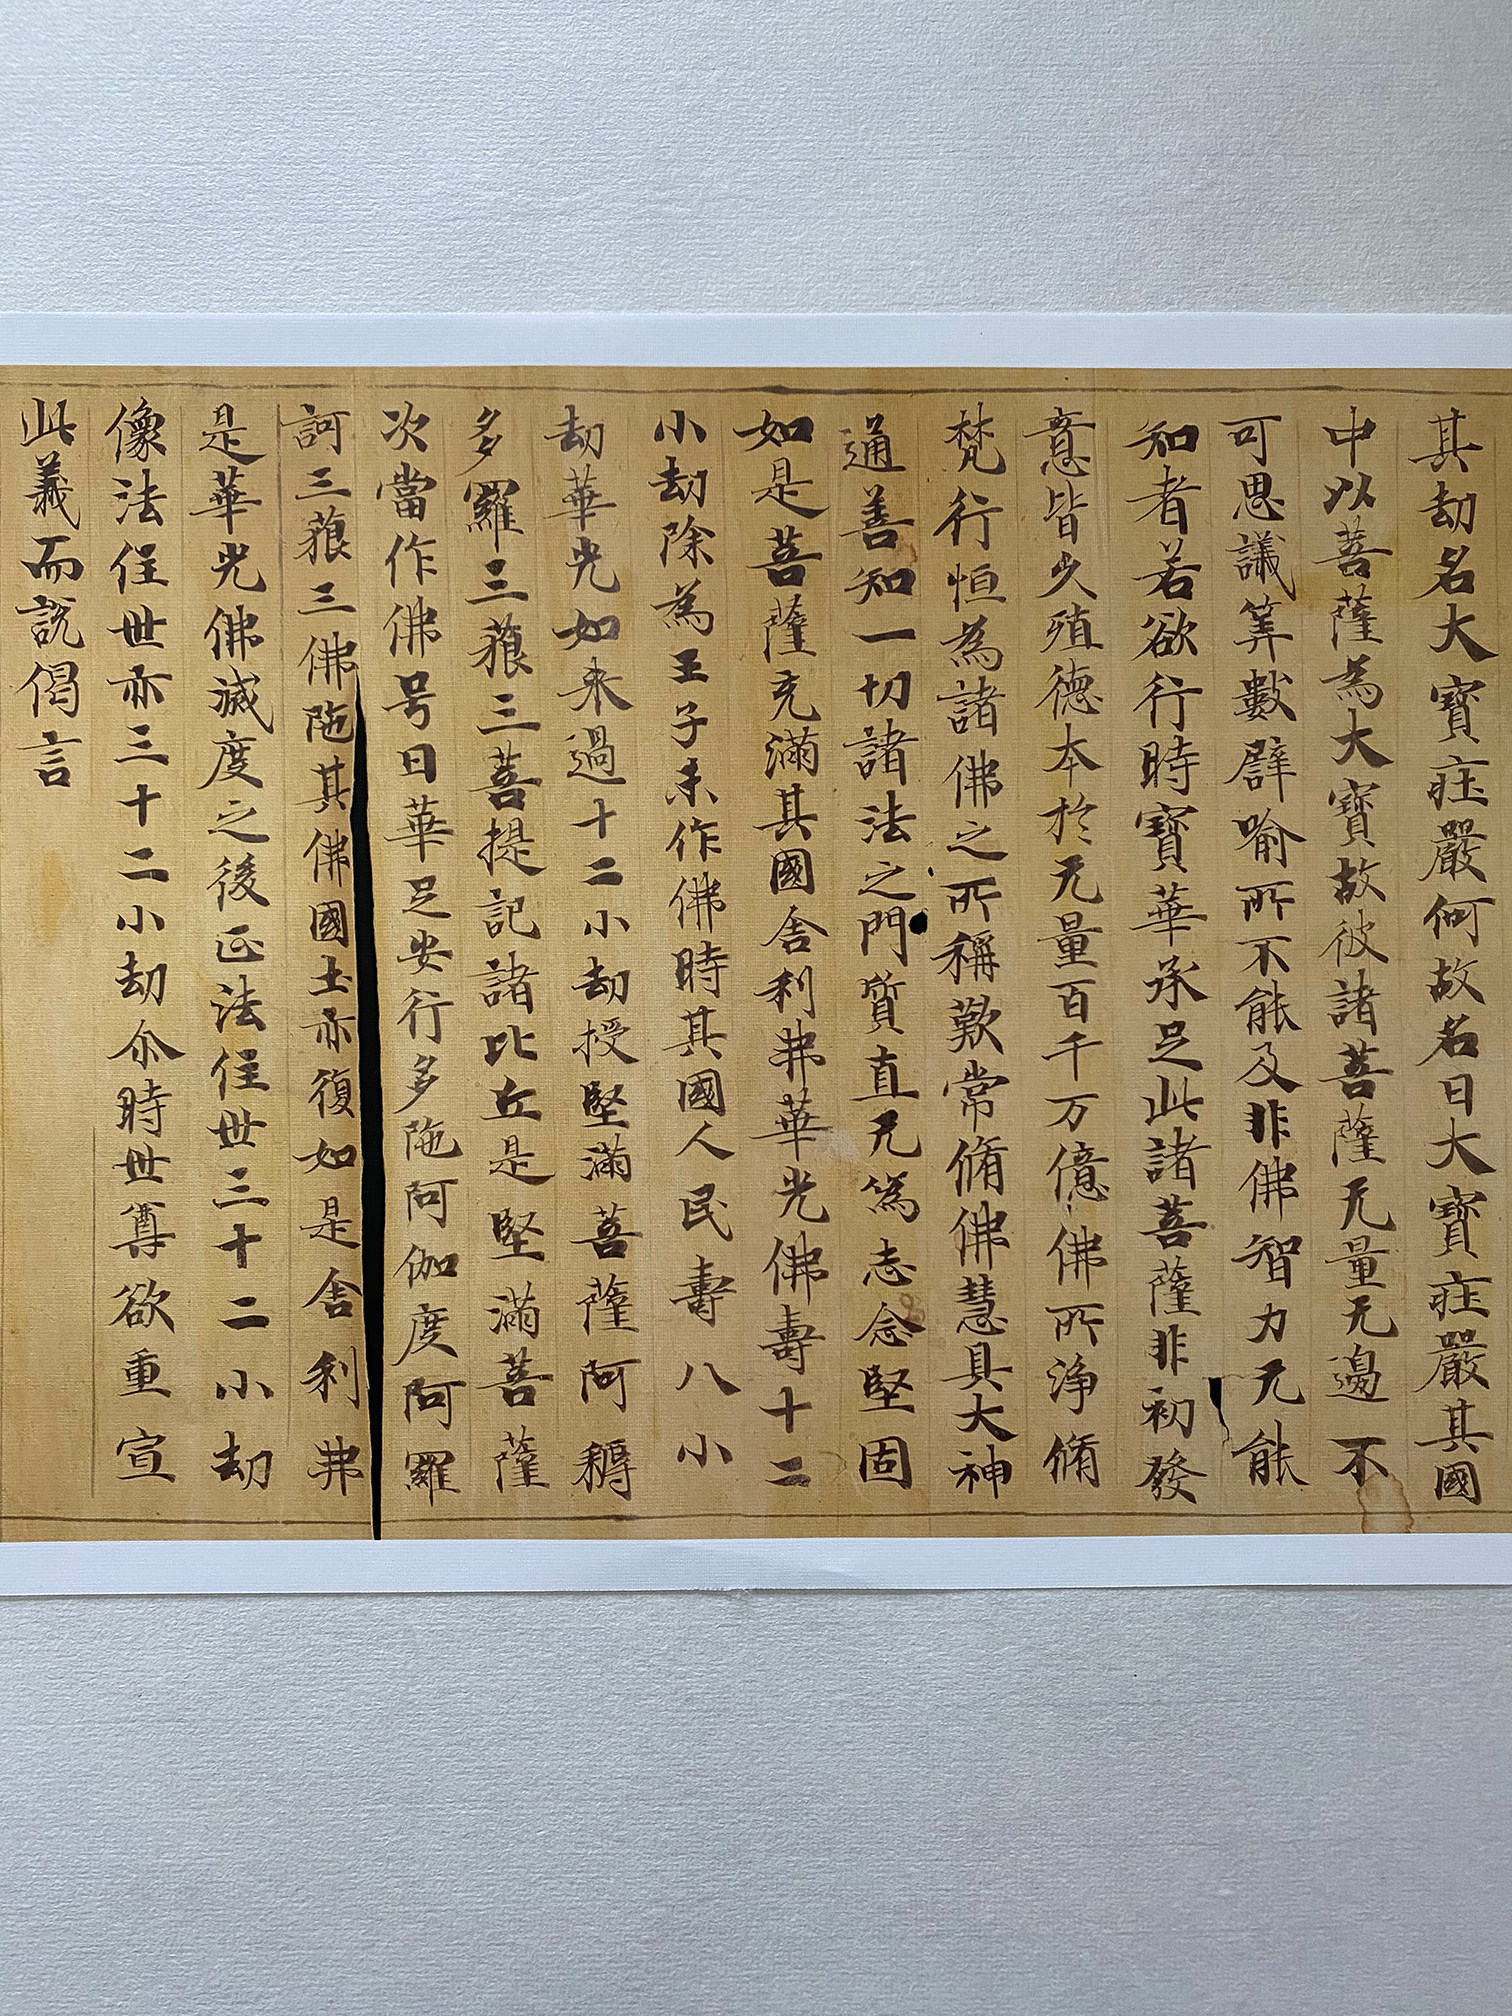 其劫名大寶疰嚴何故名曰大寶疰嚴其國
中以菩薩為大寶故彼諸菩薩无量无邊不
可思議筭數譬喻所不能及非佛智力无能
知者若欲行時寶華承足此諸菩薩非初發
意皆久殖德本於无量百千万億佛所淨脩
梵行恒為諸佛之所稱歎常脩佛慧具大神
通善知一切諸法之門質直无為志念堅固
如是菩薩充滿其國舍利弗華光佛壽十二
小劫除為王子未作佛時其國人民壽八小
劫華光如来過十二小劫授堅滿菩薩阿耨
多羅三藐三菩提記諸比丘是堅滿菩薩
次當作佛号曰華足安行多陁阿伽度阿羅
訶三藐三佛陁其佛國土亦復如是舍利弗
是華光佛滅度之後正法住世三十二小劫
像法住世亦三十二小劫尒時世尊欲重宣
此義而說偈言